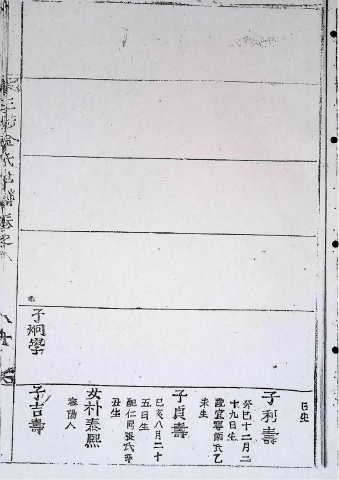 日生
子利壽
癸巳十二月二
十九日生
配宜寧南氏乙
未生
子貞壽
己亥八月二十
五日生
配仁同張氏辛
丑生
女朴泰熙
密陽人
子吉壽
子炯學